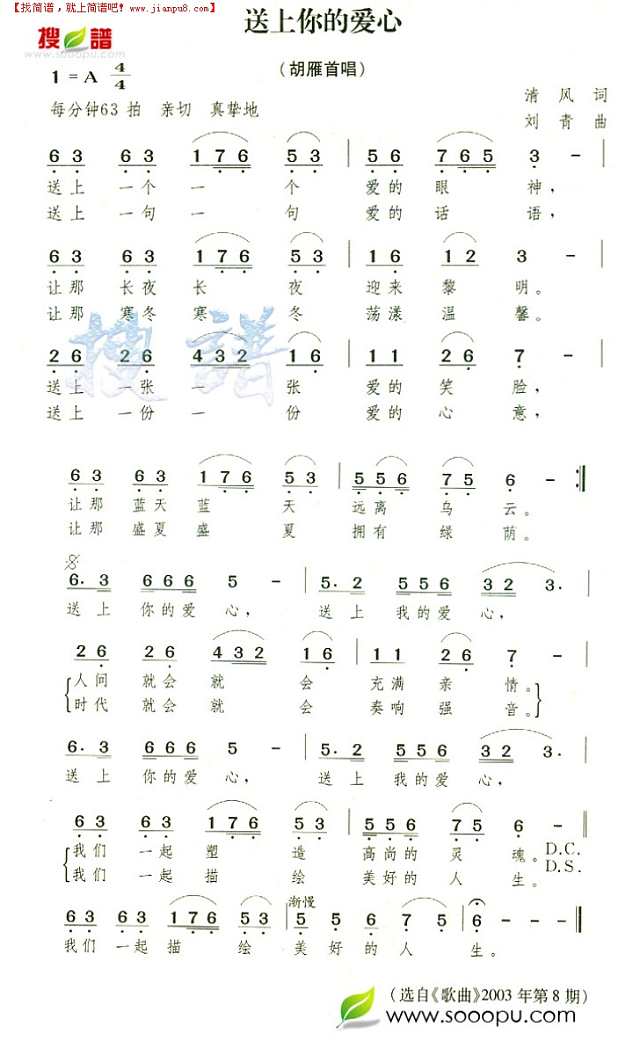 【找简谱，就上简谱吧！www.jianpu8.com】
送上你的爱心
搜谱
www.sooopu.com
(胡雁首唱)
1=A 4/4
清风 词
每分钟63拍 亲切 真挚地
刘青 曲
6 3 6 3 1 7 6 5 3 | 5 6 7 6 5 3 - |
送上一个一个爱的眼神，
送上一句一句爱的话语，
6 3 6 3 1 7 6 5 3 | 1 6 1 2 3 - |
让那长夜长夜迎来黎明。
让那寒冬寒冬荡漾温馨。
搜谱
2 6 2 6 4 3 2 1 6 | 1 1 2 6 7 - |
送上一张一张爱的笑脸，
送上一份一份爱的心意，
6 3 6 3 1 7 6 5 3 | 5 5 6 7 5 6 - :||
让那蓝天蓝天远离乌云。
让那盛夏盛夏拥有绿荫。
6. 3 6 6 6 5 - | 5. 2 5 5 5 3 2 3. |
送上你的爱心，送上我的爱心，
2 6 2 6 4 3 2 1 6 | 1 1 2 6 7 - |
人间就会就会充满亲情。
时代就会就会奏响强音。
6. 3 6 6 6 5 - | 5. 2 5 5 5 3 2 3. |
送上你的爱心，送上我的爱心，
6 3 6 3 1 7 6 5 3 | 5 5 6 7 5 6 - ||
我们一起塑造高尚的灵魂。 D.C.
我们一起描绘美好的人生。 D.S.
渐慢
6 3 6 3 1 7 6 5 3 | 5 5 6 7 5 | 6 - - - ||
我们一起描绘美好的人生。
(选自《歌曲》2003年第8期)
www.sooopu.com